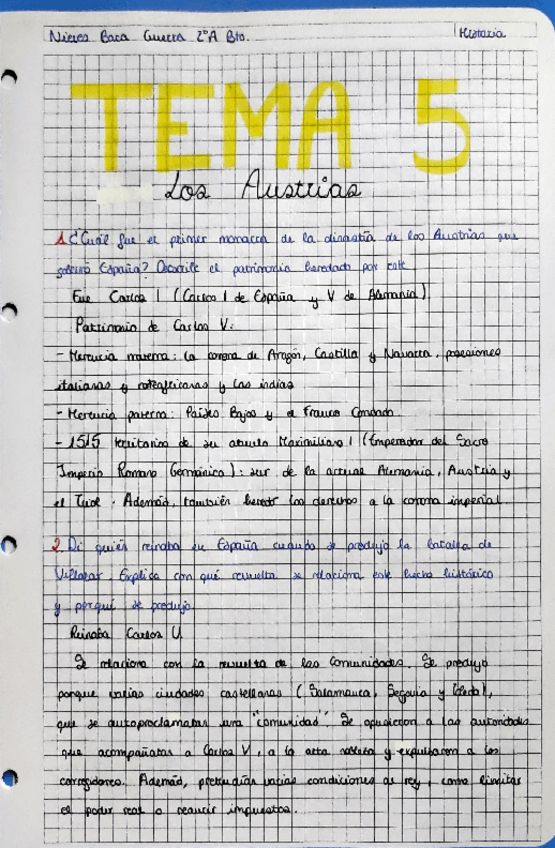 Nieves Baca Guerra 2ºA Bto. Historia
TEMA 5
Los Austrias
1. ¿Cuál fue el primer monarca de la dinastía de los Austrias que
gobernó España? Describe el patrimonio heredado por este
Fue Carlos I (Carlos I de España y V de Alemania).
Patrimonio de Carlos V:
- Herencia materna: la corona de Aragón, Castilla y Navarra, posesiones
italianas y norteafricanas y las indias
- Herencia paterna: Países Bajos y el Franco Condado
- 1515 territorios de su abuelo Maximiliano I (Emperador del Sacro
Imperio Romano Germánico): sur de la actual Alemania, Austria y
el Tirol. Además, también heredó los derechos a la corona imperial
2. Di quién reinaba en España cuando se produjo la batalla de
Villalar. Explica con qué revuelta se relaciona este hecho histórico
y porqué se produjo.
Reinaba Carlos V.
Se relaciona con la revuelta de las Comunidades. Se produjo
porque varias ciudades castellanas (Salamanca, Segovia y Toledo),
que se autoproclamaban una "comunidad". Se opusieron a las autoridades
que acompañaban a Carlos V, a la alta nobleza y expulsaron a los
corregidores. Además, pretendían varias condiciones al rey, como limitar
el poder real o reducir impuestos.